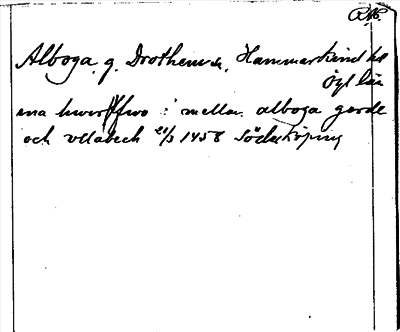 RAp.
Alboga, g. Drothems sn, Hammarkind hd
Ögl län
ena hwerffwo i mellan alboga gerde
och vllabech 21/3 1458 Söderköping